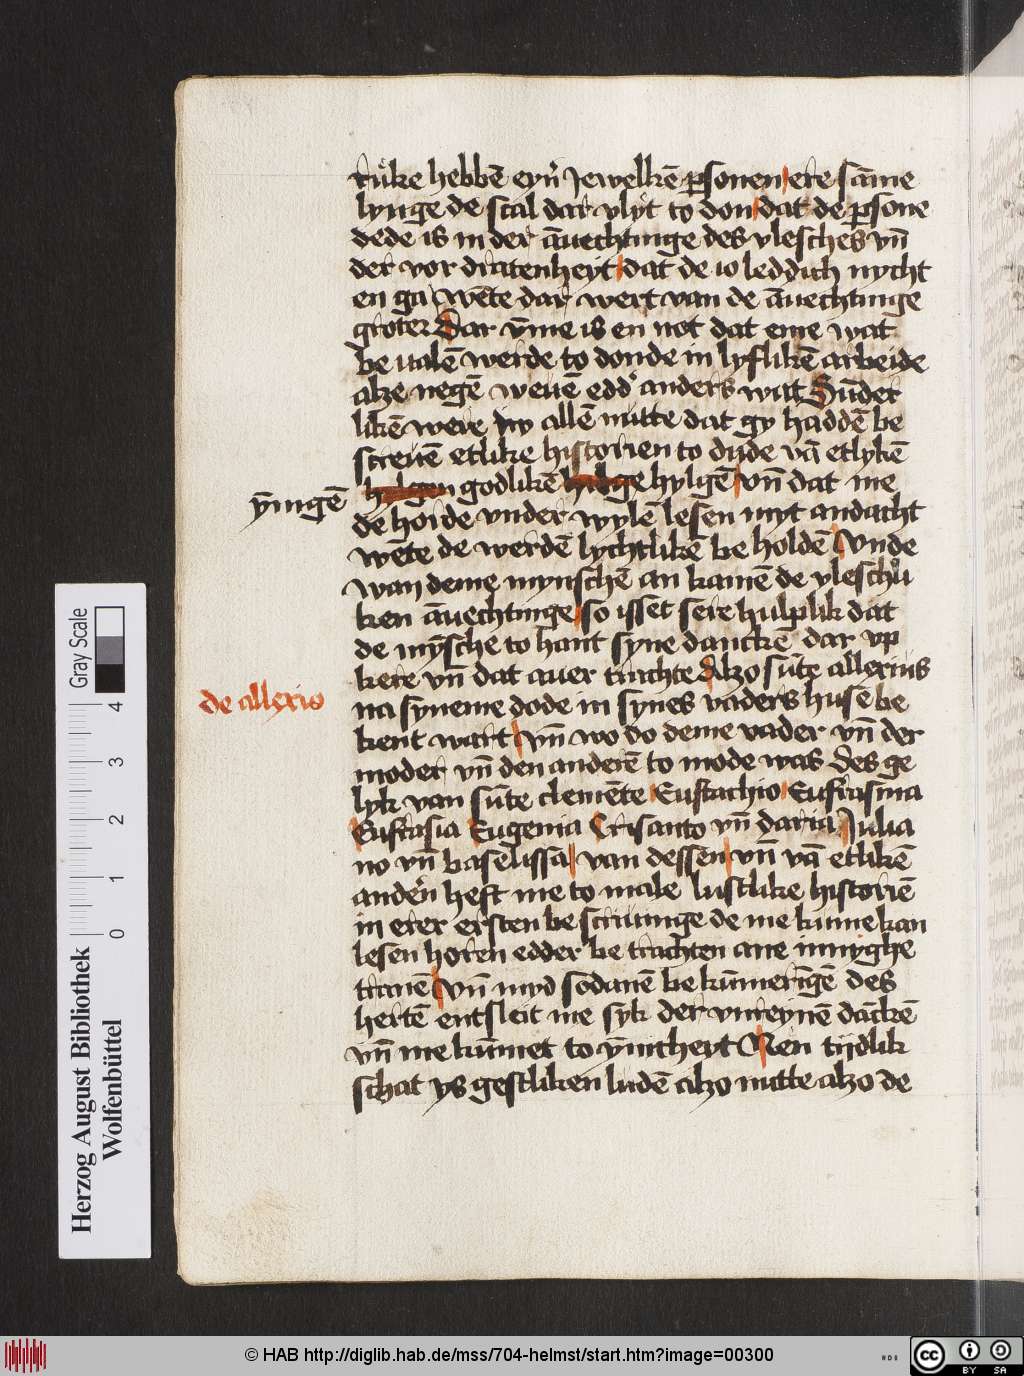 ruͦke hebbē eyn̄ Jewelkē ꝑsonen ere sāme
lynge de scal dar vlyt to don dat de ꝑsone
dede is in der āuechtinge des vlesches vn̄
der vor dratenheyt dat de io leddich nycht
en ga wēte dar wert van de āuechtinge
groter Dar v̄me is en not dat eme wat
be ualē werde to donde in lyflikē arbeide
alze negē weuē edd' anders wat Sūder
likē were Jw allē nutte dat gy haddē be
screuē etlike historien to dude vā etlykē
ȳnigē hylgen godlikē hilge hylgē vn̄ dat me
de horde vnder wylē lesen myt andacht
wēte de werdē lychtlikē be holdē Vnde
wan deme mynschē an kamē de vleschli
ken āuechtinge so isset sere hulplik dat
de mȳsche to hant syne dancke dar vp
kere vn̄ dat auer trachte Alzo sūte allexius
de allexio
na syneme dode in synes vaders husē be
kent wart Vn̄ wo do deme vader vn̄ der
moder vn̄ den anderē to mode was Des ge
lyk van sūte clemēte Eustachio Eufrasina
Eufrasia Eugenia Crisanto vn̄ daria Julia
no vn̄ baselissa van dessen vn̄ vā etlikē
andern heft me to male lustlike historiē
in erer ersten be scriuinge de me kume kan
lesen horen edder be trachten ane innyghe
tranē Vn̄ myd sodanē be kūmerīgē des
hertē entsleit me syk der vnreynē dāckē
vn̄ me kūmet to ȳnicheyt Nen tijdlik
schat ys gestliken ludē alzo nutte alzo de
Gray Scale
4
3
2
1
0
Herzog August Bibliothek
Wolfenbüttel
© HAB http://diglib.hab.de/mss/704-helmst/start.htm?image=00300
HAB
cc BY SA